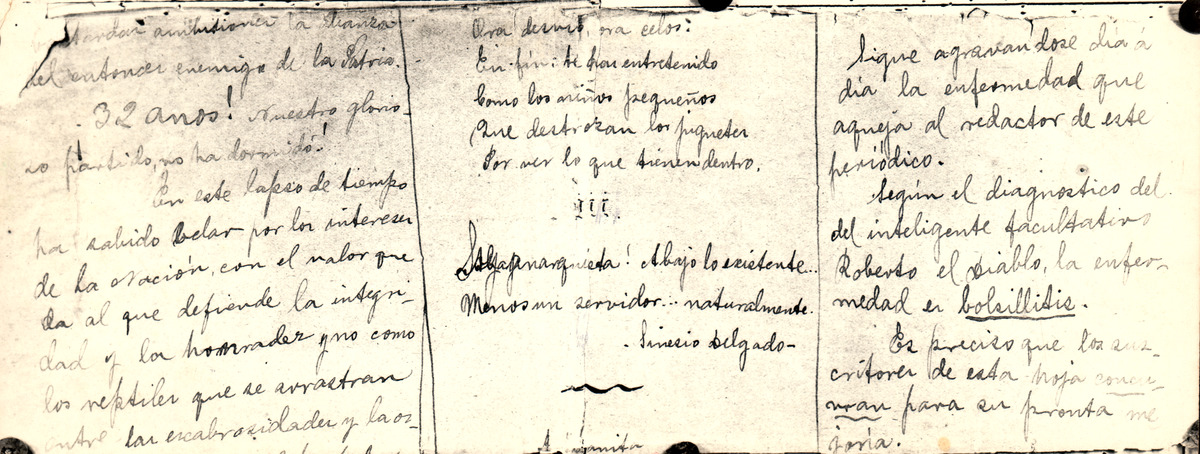 la alianza
del entonces enemigo de la Patria.
32 anos! Nuestro glorio-
so partido, no ha dormido!
En este lapso de tiempo
ha sabido velar por los intereses
de la Nación, con el valor que
da al que defiende la integri-
dad y la honradez y no como
los reptiles que se arrastran
entre las escabrosidades y la os-
Ora desvio, ora celos:
En fin: te han entretenido
Como los niños pequeños
Que destrozan los juguetes
Por ver lo que tienen dentro.
III
anarquista! Abajo lo existente...
Menos un servidor... naturalmente.
- Sinesio Delgado -
A Juanita
Sigue agravandose dia á
dia la enfermedad que
aqueja al redactor de este
periódico.
Según el diagnostico del
del inteligente facultativo
Roberto el Diablo, la enfer-
medad es bolsillitis.
Es preciso que los sus-
critores de esta hoja concu-
rran para su pronta me
joria.